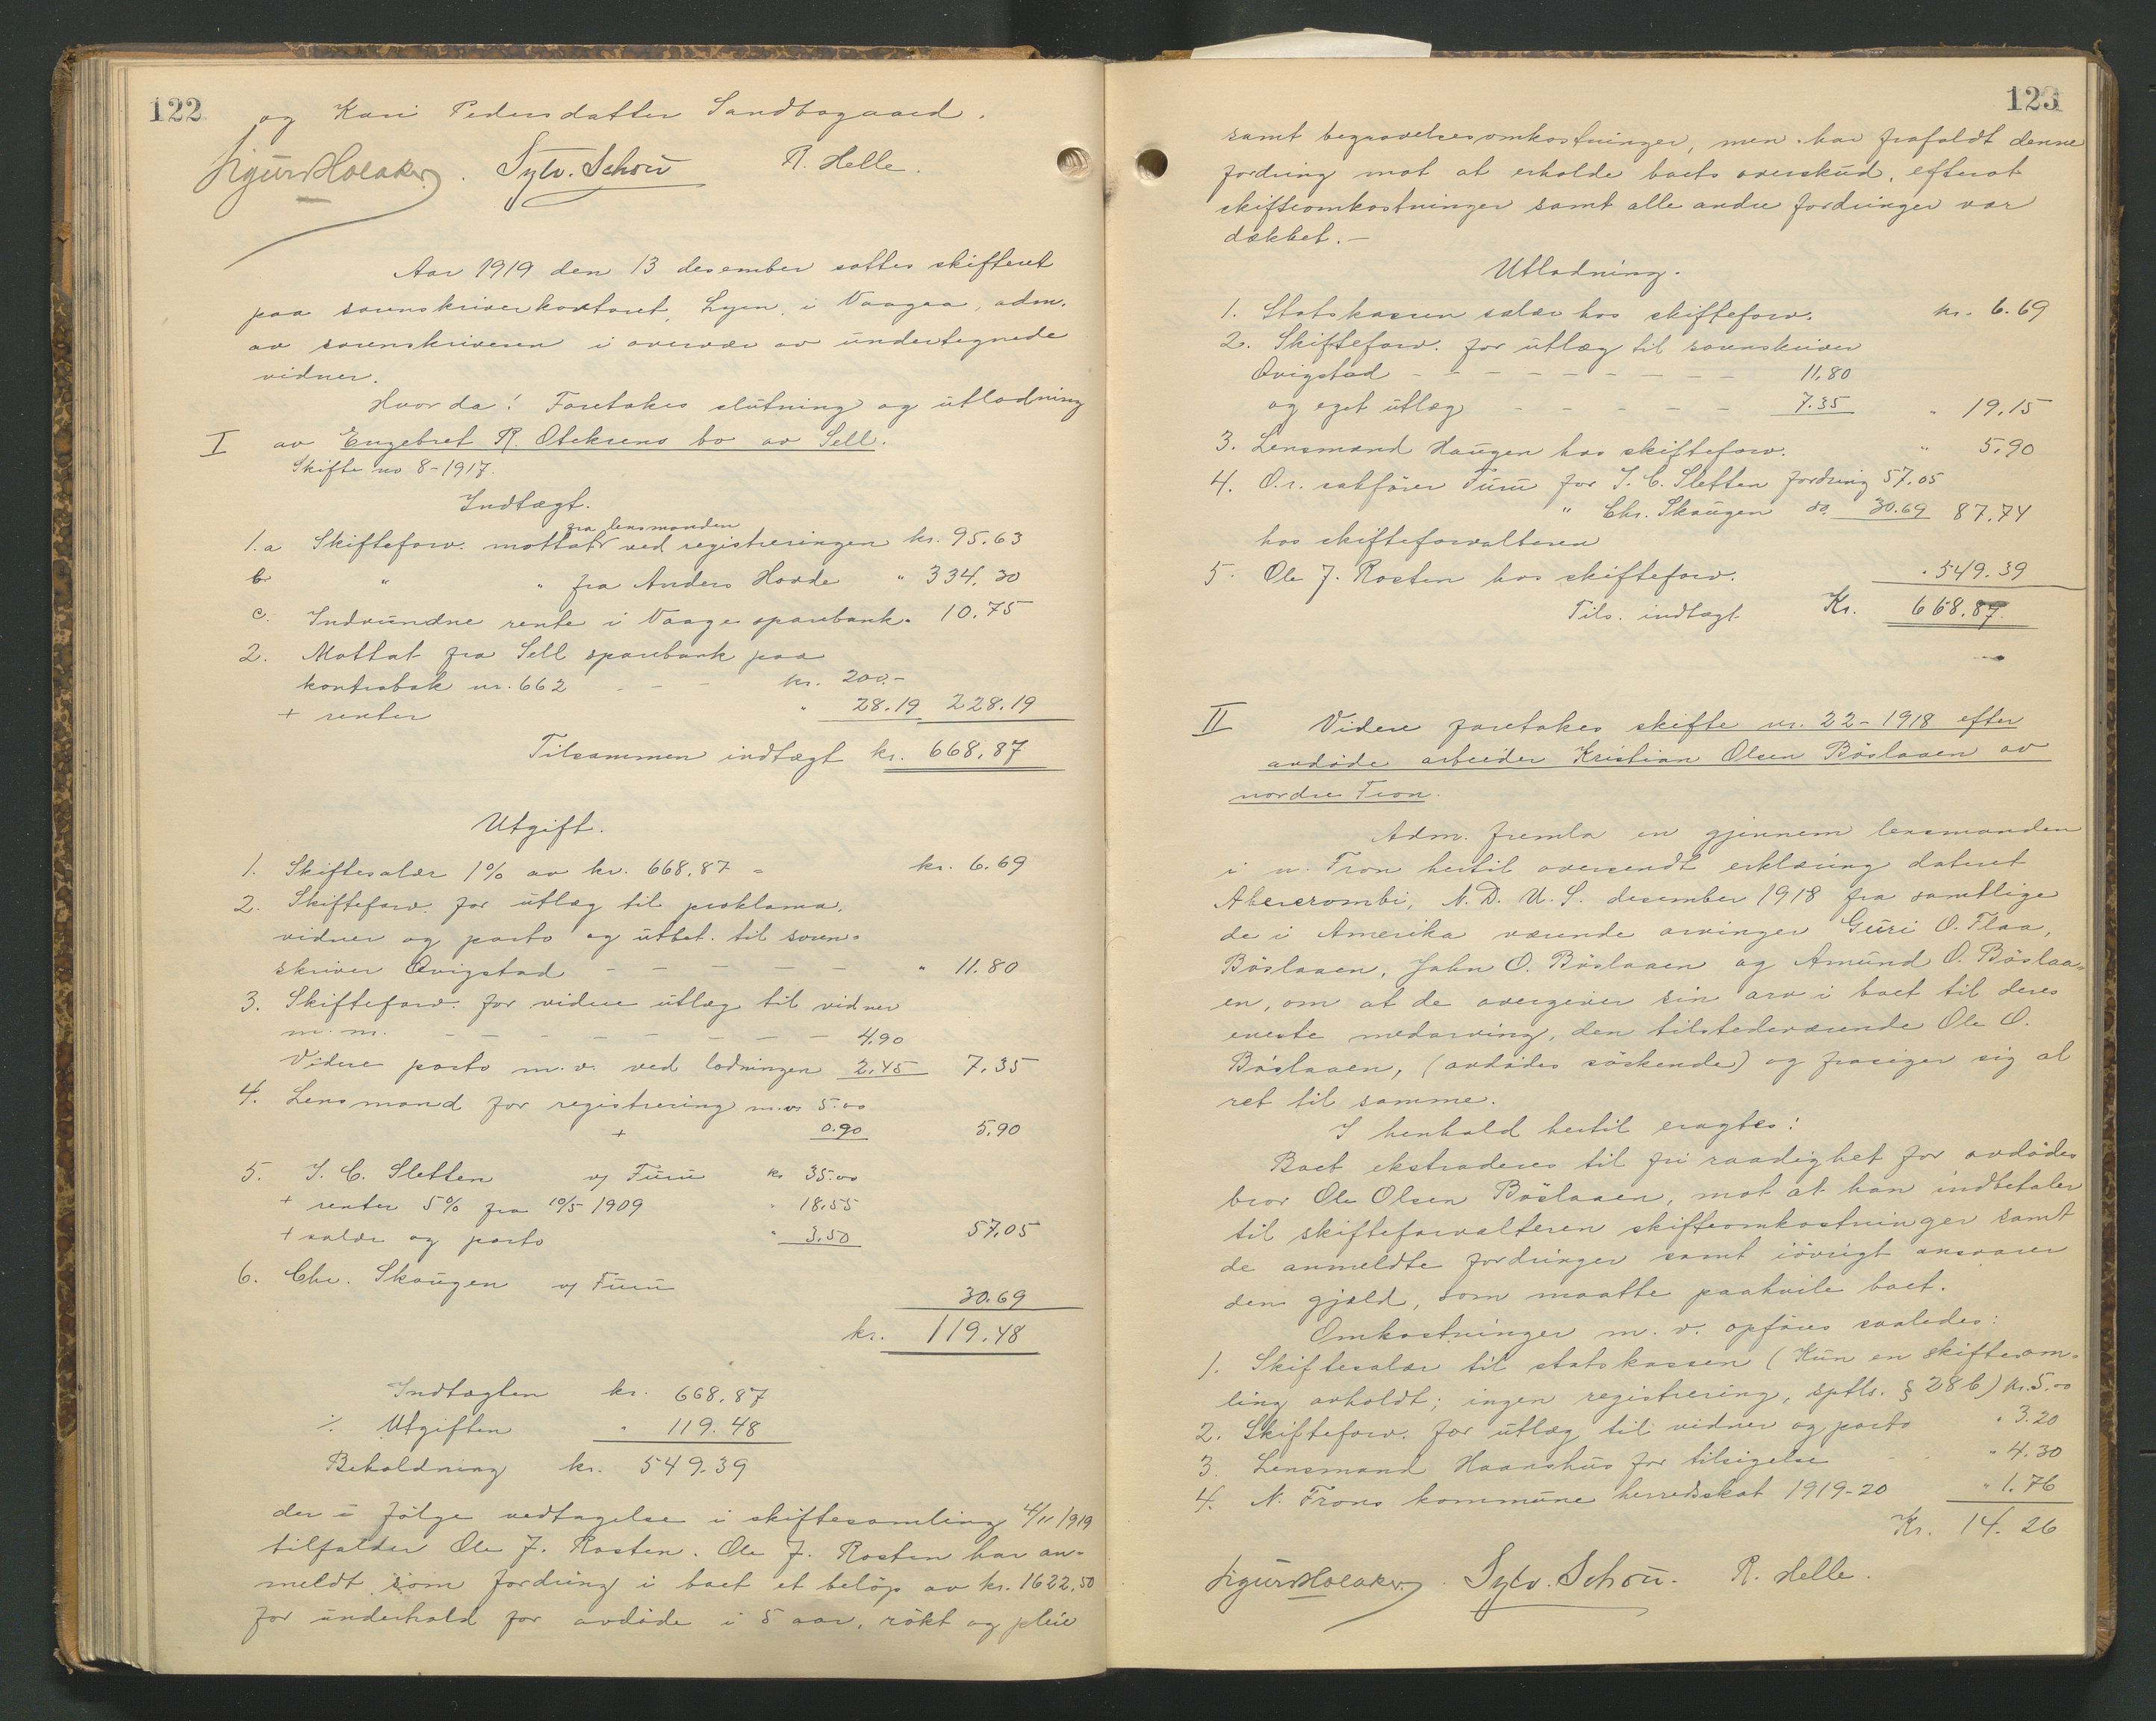 122
og Kari Pedersdatter Sandbogaard.
Sigurd Holaker. Sylv. Schou R. Helle.
Aar 1919 den 13 desember sattes skifteret
paa sorenskriverkontoret, Lyen, i Vaagaa, adm.
av sorenskriveren i overvær av undertegnede
vidner.
Hvor da! Foretokes slutning og utlodning
I av Engebret R. Otekrens bo av Sell.
Skifte no 8-1917.
Indtægt.
1.a Skifteforv. mottat fra lensmanden ved registreringen kr. 95.63
b " " fra Anders Hovde " 334.30
c. Indvundne rente i Vaage sparebank " 10.75
2. Mottat fra Sell sparebank paa
kontrabok nr. 662 - - - kr. 200.-
+ renter " 28.19 228.19
Tilsammen indtægt kr. 668.87
Utgift.
1. Skiftesalær 1% av kr. 668.87 = kr. 6.69
2. Skifteforv. for utlæg til proklama,
vidner og porto og utbet. til soren=
skriver Qvigstad - - - - - " 11.80
3. Skifteforv. for videre utlæg til vidner
m. m. - - - - - - - - 4.90
Videre porto m. v. ved lodningen 2.45 7.35
4. Lensmand for registrering m.v. 5.00
+ 0.90 5.90
5. J. C. Sletten v/ Furu kr 35.00
+ renter 5% fra 10/5 1909 " 18.55
+ salær og porto " 3.50 57.05
6. Chr. Skaugen v/ Furu
30.69
kr. 119.48
Indtægten kr. 668.87
÷ Utgiften " 119.48
Beholdning kr. 549.39
der i følge vedtagelse i skiftesamling 4/11 1919
tilfalder Ole J. Rosten. Ole J. Rosten har an=
meldt som fordring i boet et beløp av kr. 1622.50
for underhold for avdøde i 5 aar, røkt og pleie
123
samt begravelsesomkostninger, men har frafaldt denne
fordring mot at erholde boets overskud, efterat
skifteomkostninger samt alle andre fordringer var
dækket. -
Utlodning.
1. Statskassen salær hos skifteforv. kr. 6.69
2. Skifteforv. for utlæg til sorenskriver
Qvigstad - - - - - - - - - 11.80
og eget utlæg - - - - - - 7.35 " 19.15
3. Lensmand Haugen hos skifteforv. " 5.90
4. O.r. sakfører Furu for J. C. Sletten fordring 57.05
" Chr. Skaugen do. 30.69 87.74
hos skifteforvalteren
5. Ole J. Rosten hos skifteforv. " 549.39
Tils. indtægt Kr. 668.87
II Videre foretokes skifte nr. 22-1918 efter
avdøde arbeider Kristian Olsen Böslaaen av
nordre Fron.
Adm. fremla en gjennem lensmanden
i n. Fron hertil oversendt erklæring dateret
Abercrombi, N.D. U.S. desember 1918 fra samtlige
de i Amerika værende arvinger Guri O. Flaa,
Böslaaen, John O. Böslaaen og Amund O. Böslaa=
en, om at de overgiver sin arv i boet til deres
eneste medarving, den tilstedeværende Ole O.
Böslaaen, (avdødes søskende) og frasiger sig al
ret til samme.
I henhold hertil eragtes:
Boet ekstraderes til fri raadighet for avdødes
bror Ole Olsen Böslaaen, mot at han indbetaler
til skifteforvalteren skifteomkostninger samt
de anmeldte fordringer samt iövrigt ansvarer
den gjæld, som maatte paahvile boet.
Omkostninger m. v. opføres saaledes:
1. Skiftesalær til statskassen (Kun en skiftesam=
ling avholdt; ingen registrering, sptls. § 28 b) kr. 5.00
2. Skifteforv. for utlæg til vidner og porto " 3.20
3. Lensmand Haanshus for tilsigelse " 4.30
4. N. Frons kommune herredsskat 1919-20 " 1.76
Kr. 14.26
Sigurd Holaker. Sylv. Schou. R. Helle.